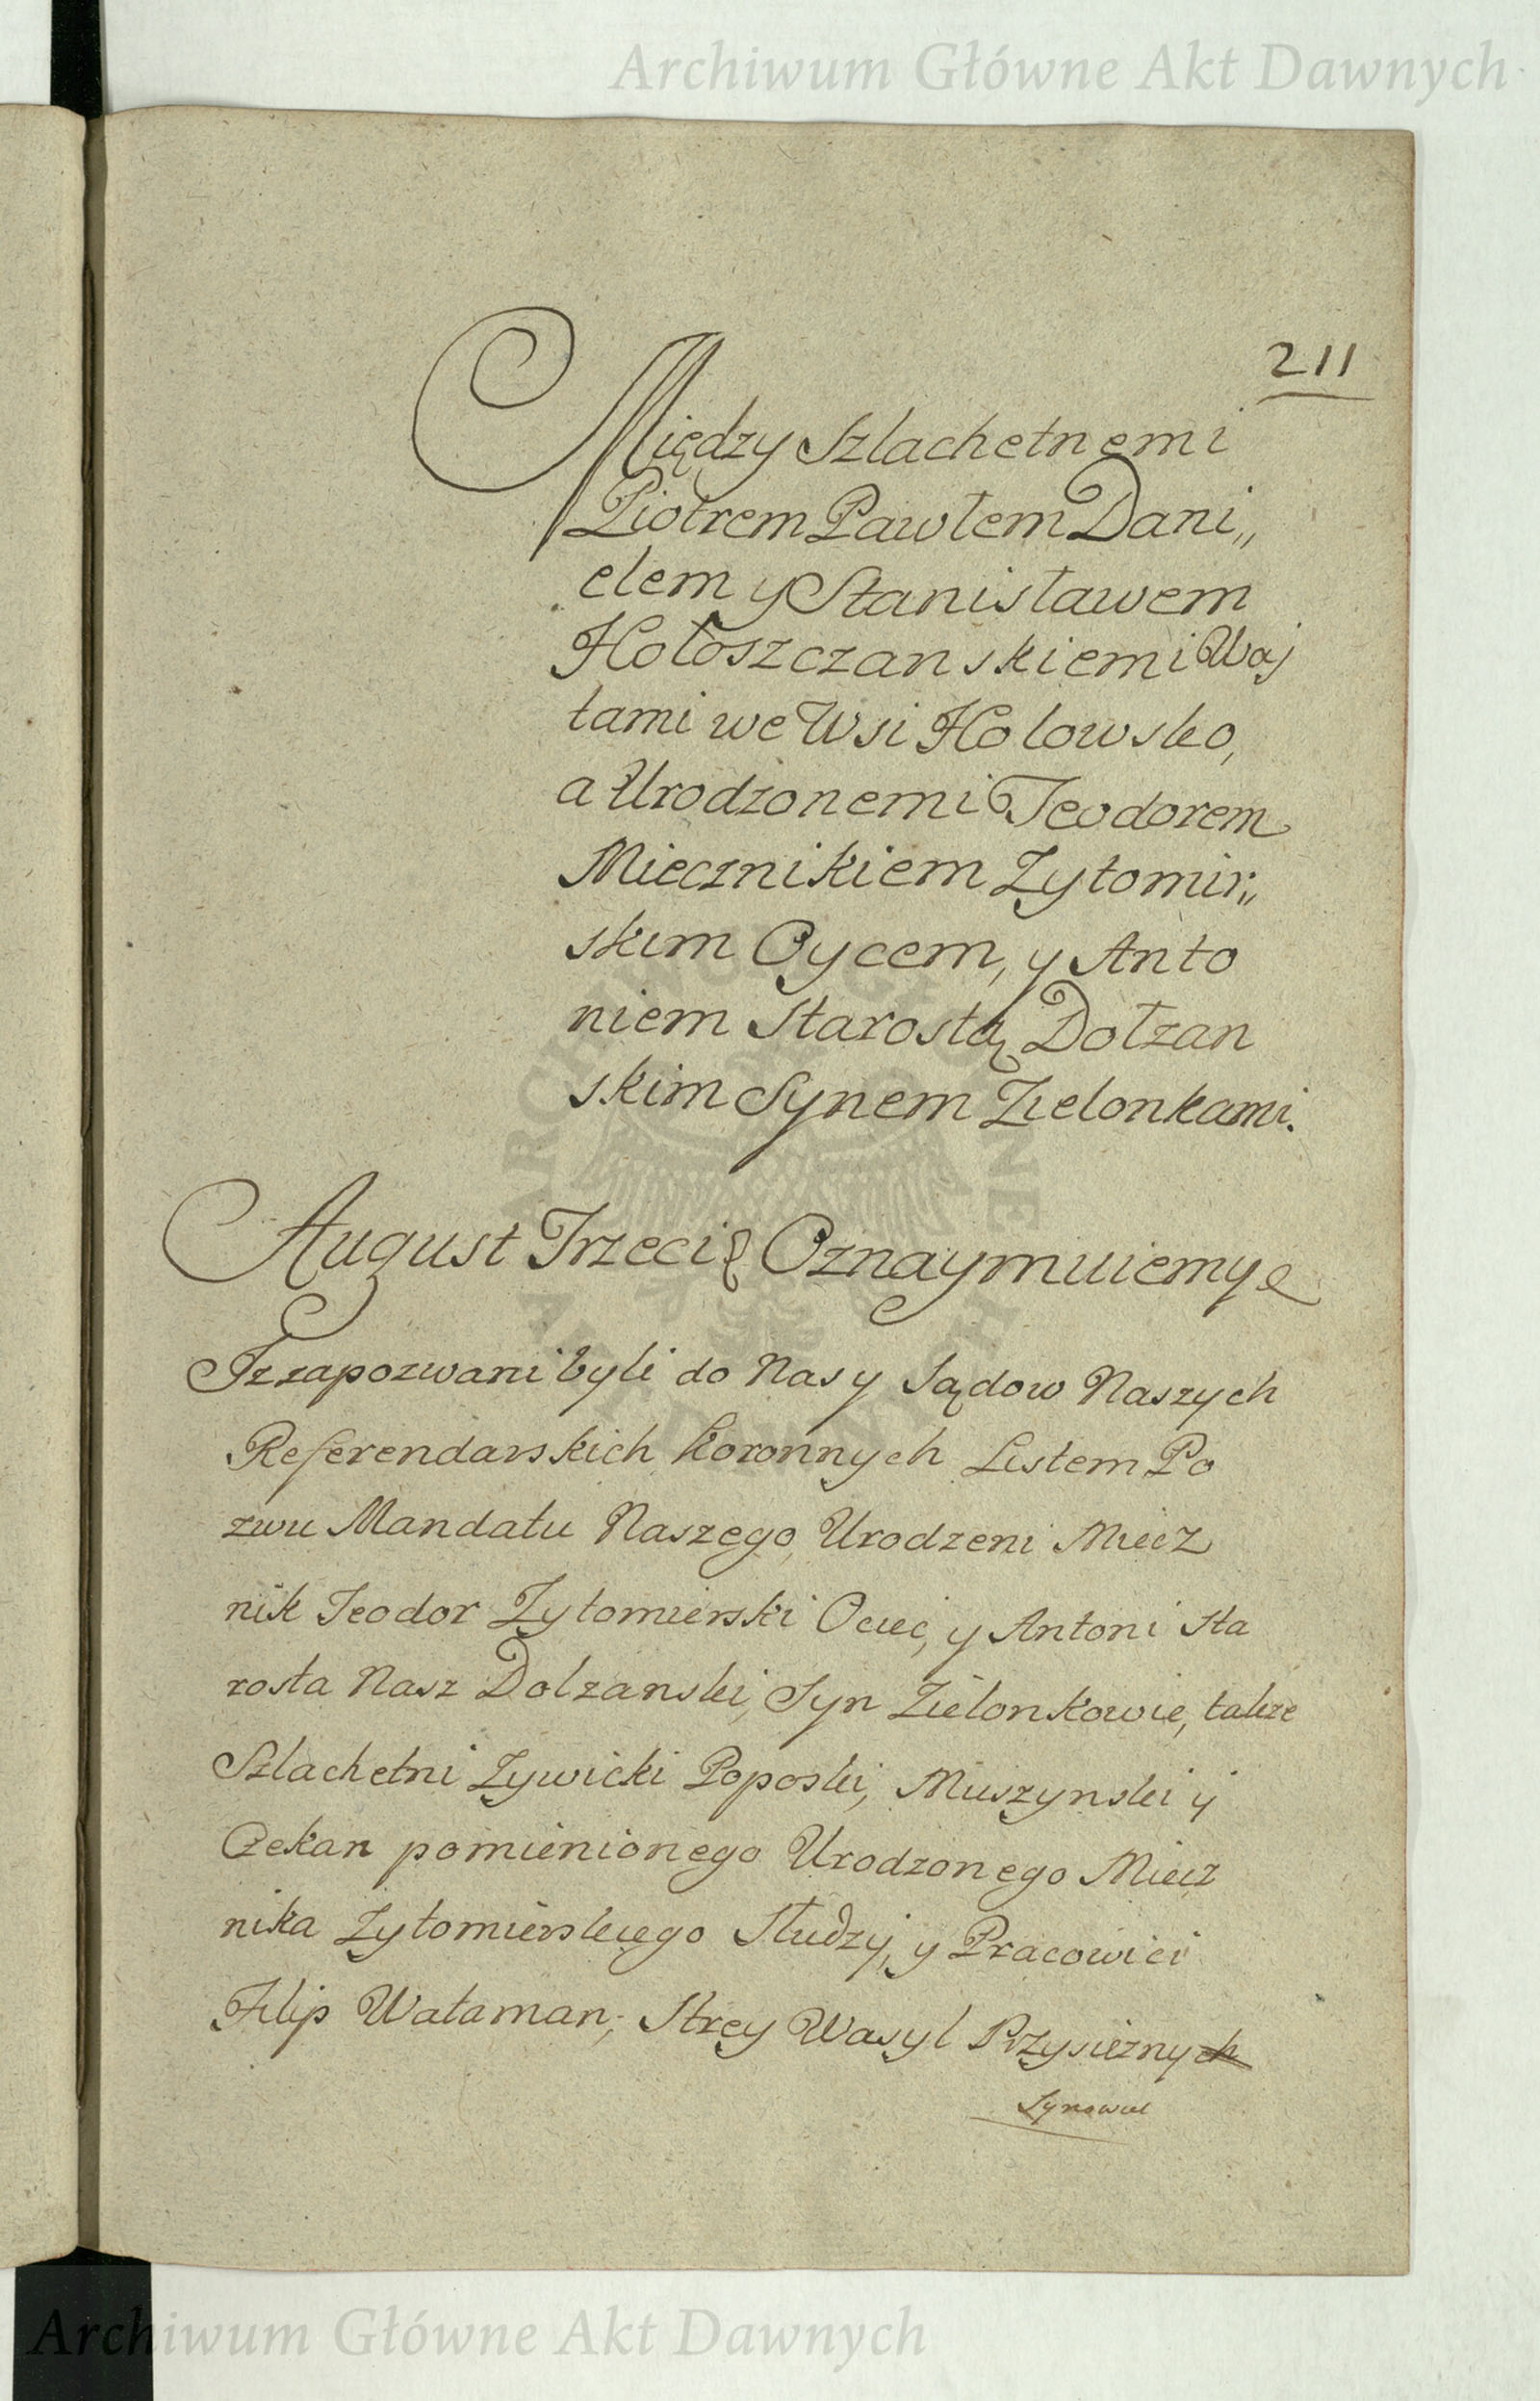 Archiwum Główne Akt Dawnych
211
Między Szlachetnemi
Piotrem Pawłem Dani„
elem y Stanisławem
Hołoszczanskiemi Woj
tami we Wsi Hołowsko,
a Urodzonemi Teodorem
Miecznikiem Zytomir„
skim Oycem, y Anto
niem Starostą Dołzan
skim Synem Zielonkami.
August Trzeci Oznaymuiemy
Iz zapozwani byli do Nas y Sądow Naszych
Referendarskich Koronnych Listem Po
zwu Mandatu Naszego, Urodzeni Miecz
nik Teodor Zytomierski Ociec, y Antoni Sta
rosta Nasz Dolzanski, Syn Zielonkowie, takze
Szlachetni Zywicki Poposki, Muszynski ÿ
Czekan pomienionego Urodzonego Miecz
nika Zytomierskiego Słudzy, y Pracowici
Filip Wataman, Strey Wasyl Przysiezny
Synowie
Archiwum Główne Akt Dawnych